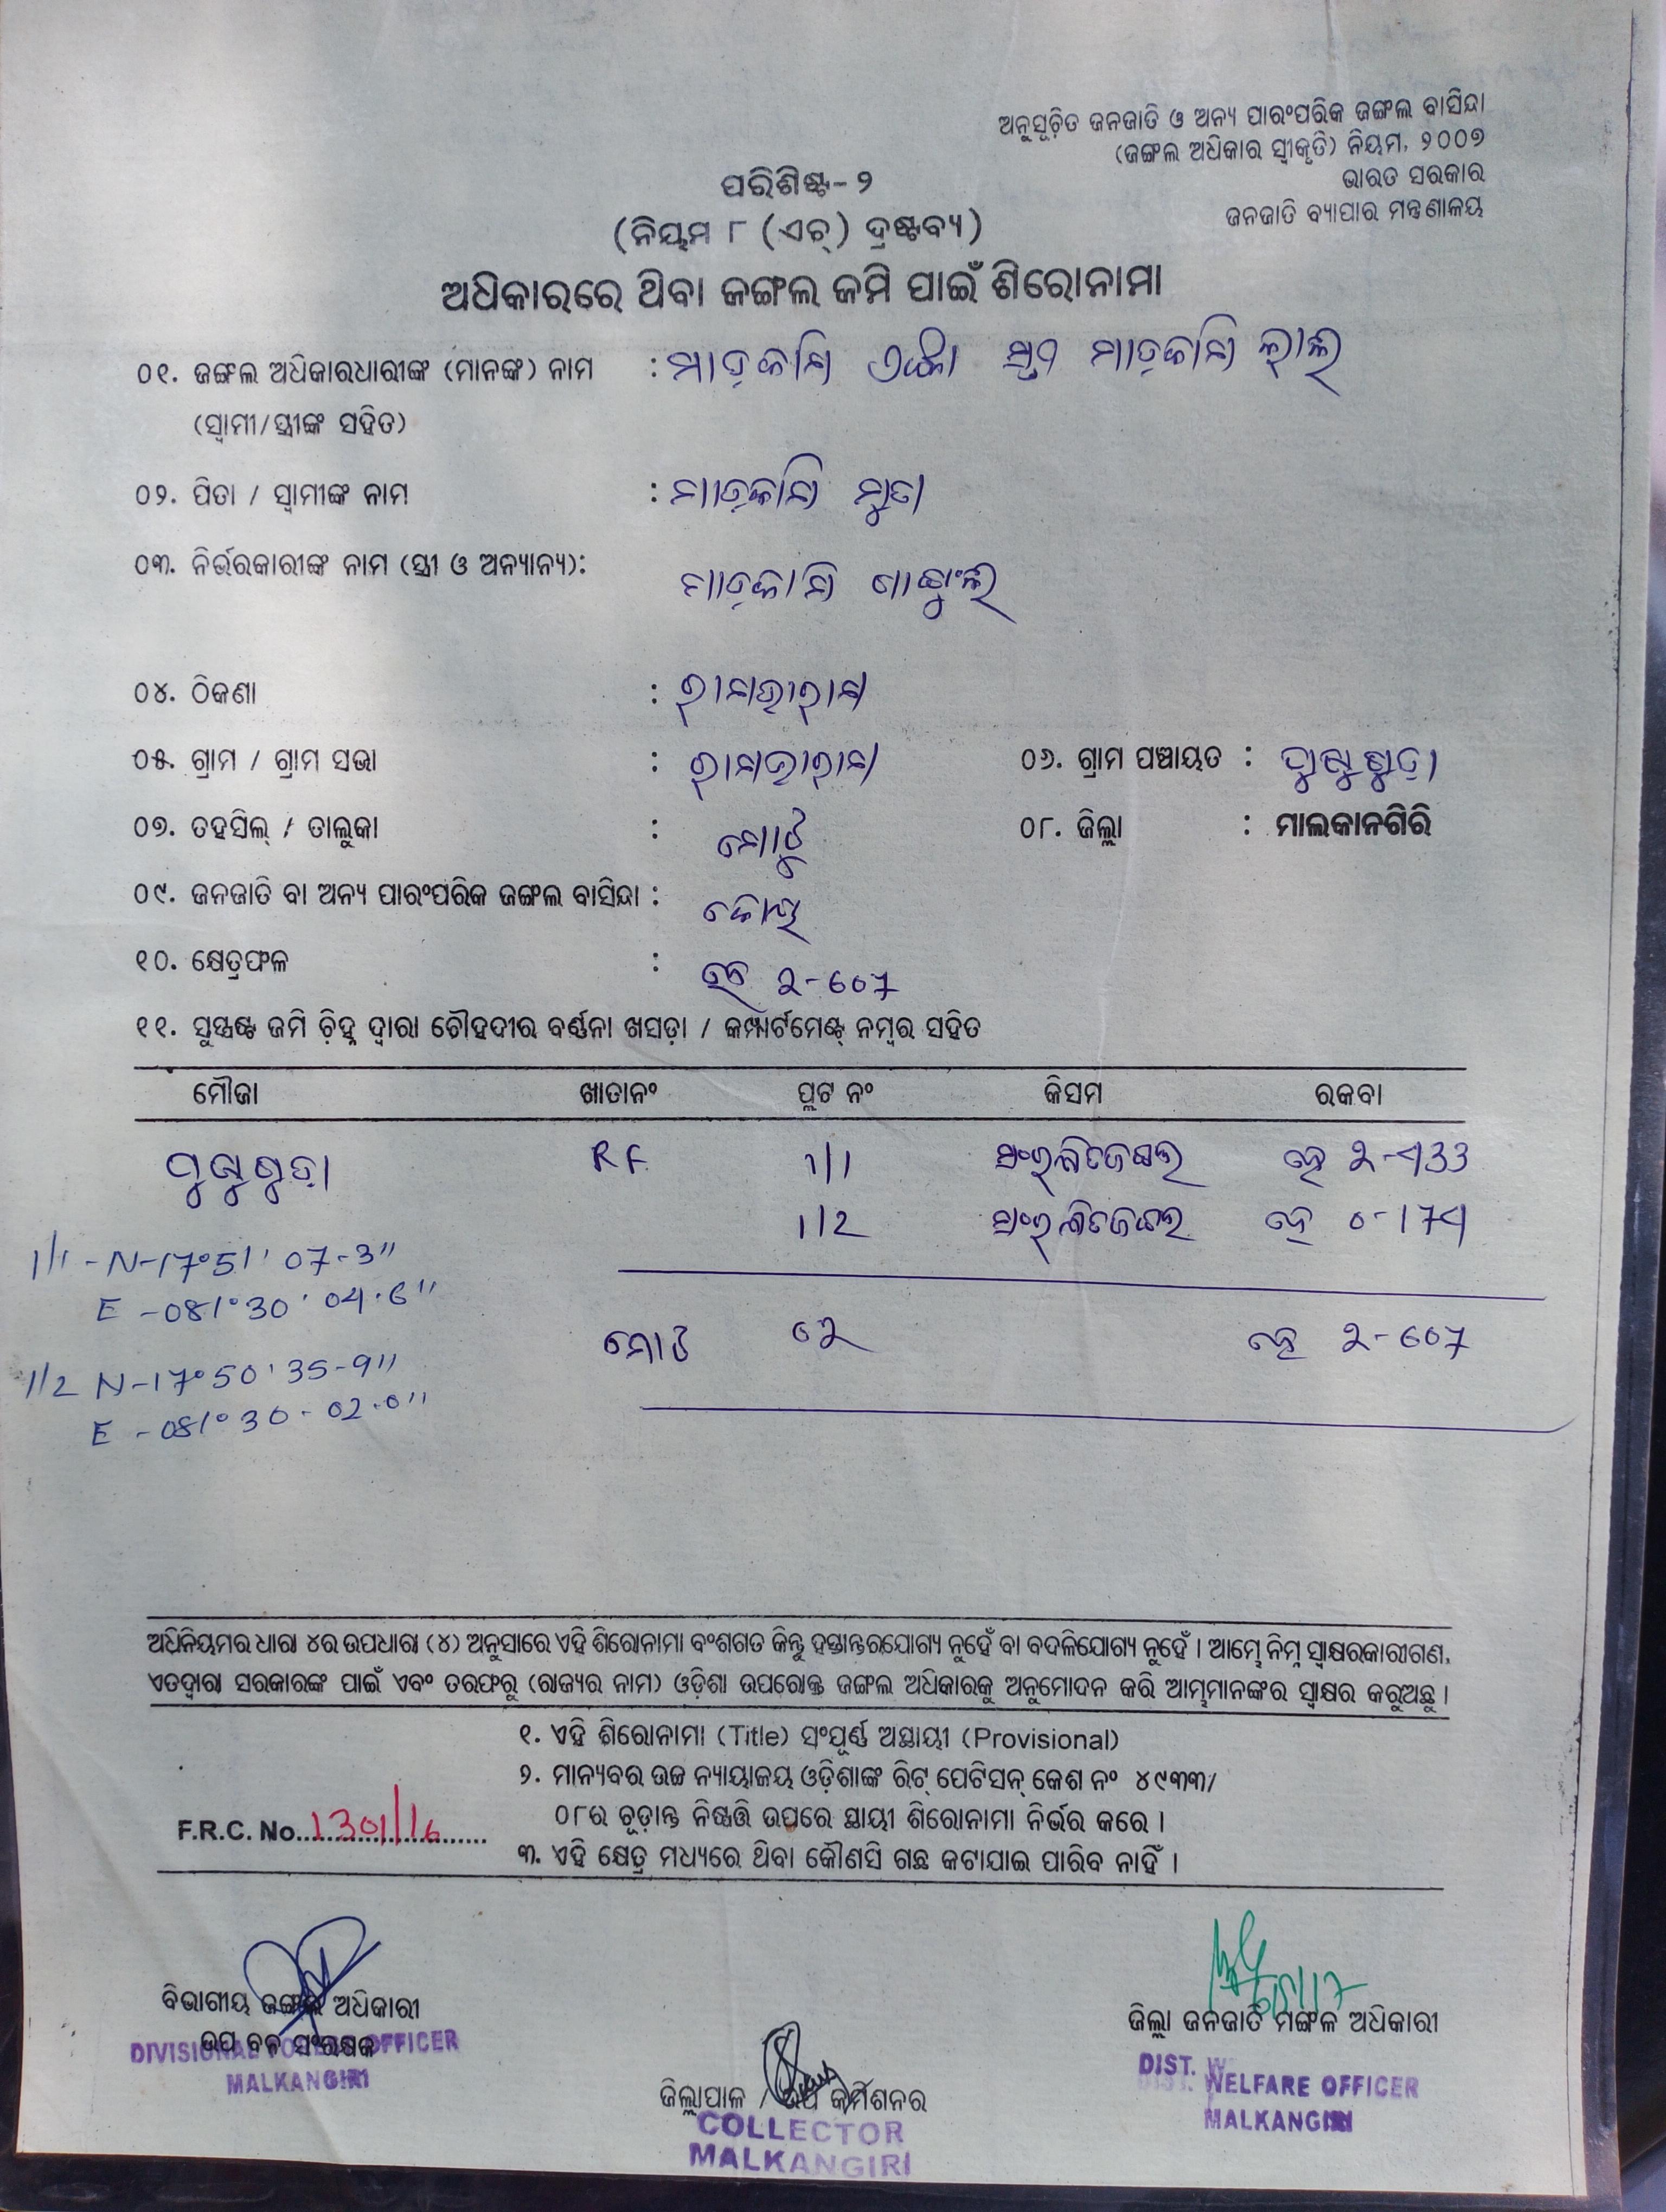 ଅନୁସୂଚିତ ଜନଜାତି ଓ ଅନ୍ୟ ପାରଂପରିକ ଜଙ୍ଗଲ ବାସିନ୍ଦା
(ଜଙ୍ଗଲ ଅଧିକାର ସ୍ୱୀକୃତି) ନିୟମ, ୨୦୦୭
ଭାରତ ସରକାର
ଜନଜାତି ବ୍ୟାପାର ମନ୍ତ୍ରଣାଳୟ
ପରିଶିଷ୍ଟ-୨
(ନିୟମ ୮ (ଏଚ୍) ଦ୍ରଷ୍ଟବ୍ୟ)
ଅଧିକାରରେ ଥିବା ଜଙ୍ଗଲ ଜମି ପାଇଁ ଶିରୋନାମା
୦୧. ଜଙ୍ଗଲ ଅଧିକାରଧାରୀଙ୍କ (ମାନଙ୍କ) ନାମ : ମାଡ଼କାମି
(ସ୍ୱାମୀ/ସ୍ତ୍ରୀଙ୍କ ସହିତ)
୦୨. ପିତା / ସ୍ୱାମୀଙ୍କ ନାମ : ମାଡ଼କାମି ମୁତା
୦୩. ନିର୍ଭରକାରୀଙ୍କ ନାମ (ସ୍ତ୍ରୀ ଓ ଅନ୍ୟାନ୍ୟ): ମାଡ଼କାମି
୦୪. ଠିକଣା :
୦୫. ଗ୍ରାମ / ଗ୍ରାମ ସଭା : ୦୬. ଗ୍ରାମ ପଞ୍ଚାୟତ :
୦୭. ତହସିଲ୍ / ତାଲୁକା : ମୋଟୁ ୦୮. ଜିଲ୍ଲା : ମାଲକାନଗିରି
୦୯. ଜନଜାତି ବା ଅନ୍ୟ ପାରଂପରିକ ଜଙ୍ଗଲ ବାସିନ୍ଦା : କୋୟା
୧୦. କ୍ଷେତ୍ରଫଳ : ହେ 2-607
୧୧. ସୁସ୍ପଷ୍ଟ ଜମି ଚିହ୍ନ ଦ୍ୱାରା ଚୌହଦୀର ବର୍ଣ୍ଣନା ଖସଡ଼ା / କମ୍ପାର୍ଟମେଣ୍ଟ୍ ନମ୍ବର ସହିତ
ମୌଜା ଖାତାନଂ ପ୍ଲଟ ନଂ କିସମ ରକବା
RF 1/1 ସଂରକ୍ଷିତ ଜଙ୍ଗଲ ହେ 2-433
1/2 ସଂରକ୍ଷିତ ଜଙ୍ଗଲ ହେ 0-174
1/1 - N-17°51' 07-3"
E -081°30' 04.6"
ମୋଟ 02 ହେ 2-607
1/2 N-17°50'35-9"
E -081°30-02.0"
ଅଧିନିୟମର ଧାରା ୪ର ଉପଧାରା (୪) ଅନୁସାରେ ଏହି ଶିରୋନାମା ବଂଶଗତ କିନ୍ତୁ ହସ୍ତାନ୍ତରଯୋଗ୍ୟ ନୁହେଁ ବା ବଦଳିଯୋଗ୍ୟ ନୁହେଁ । ଆମ୍ଭେ ନିମ୍ନ ସ୍ୱାକ୍ଷରକାରୀଗଣ,
ଏତଦ୍ୱାରା ସରକାରଙ୍କ ପାଇଁ ଏବଂ ତରଫରୁ (ରାଜ୍ୟର ନାମ) ଓଡ଼ିଶା ଉପରୋକ୍ତ ଜଙ୍ଗଲ ଅଧିକାରକୁ ଅନୁମୋଦନ କରି ଆମ୍ଭମାନଙ୍କର ସ୍ୱାକ୍ଷର କରୁଅଛୁ ।
୧. ଏହି ଶିରୋନାମା (Title) ସଂପୂର୍ଣ୍ଣ ଅସ୍ଥାୟୀ (Provisional)
୨. ମାନ୍ୟବର ଉଚ୍ଚ ନ୍ୟାୟାଳୟ ଓଡ଼ିଶାଙ୍କ ରିଟ୍ ପେଟିସନ୍ କେଶ ନଂ ୪୯୩୩/
୦୮ର ଚୂଡ଼ାନ୍ତ ନିଷ୍ପତ୍ତି ଉପରେ ସ୍ଥାୟୀ ଶିରୋନାମା ନିର୍ଭର କରେ ।
F.R.C. No. 1301/16
୩. ଏହି କ୍ଷେତ୍ର ମଧ୍ୟରେ ଥିବା କୌଣସି ଗଛ କଟାଯାଇ ପାରିବ ନାହିଁ ।
ବିଭାଗୀୟ ଜଙ୍ଗଲ ଅଧିକାରୀ
ଉପ ବନ ସଂରକ୍ଷକ
DIVISIONAL FOREST OFFICER
MALKANGIRI
ଜିଲ୍ଲାପାଳ / ଉପ କମିଶନର
COLLECTOR
MALKANGIRI
ଜିଲ୍ଲା ଜନଜାତି ମଙ୍ଗଳ ଅଧିକାରୀ
DIST. WELFARE OFFICER
MALKANGIRI